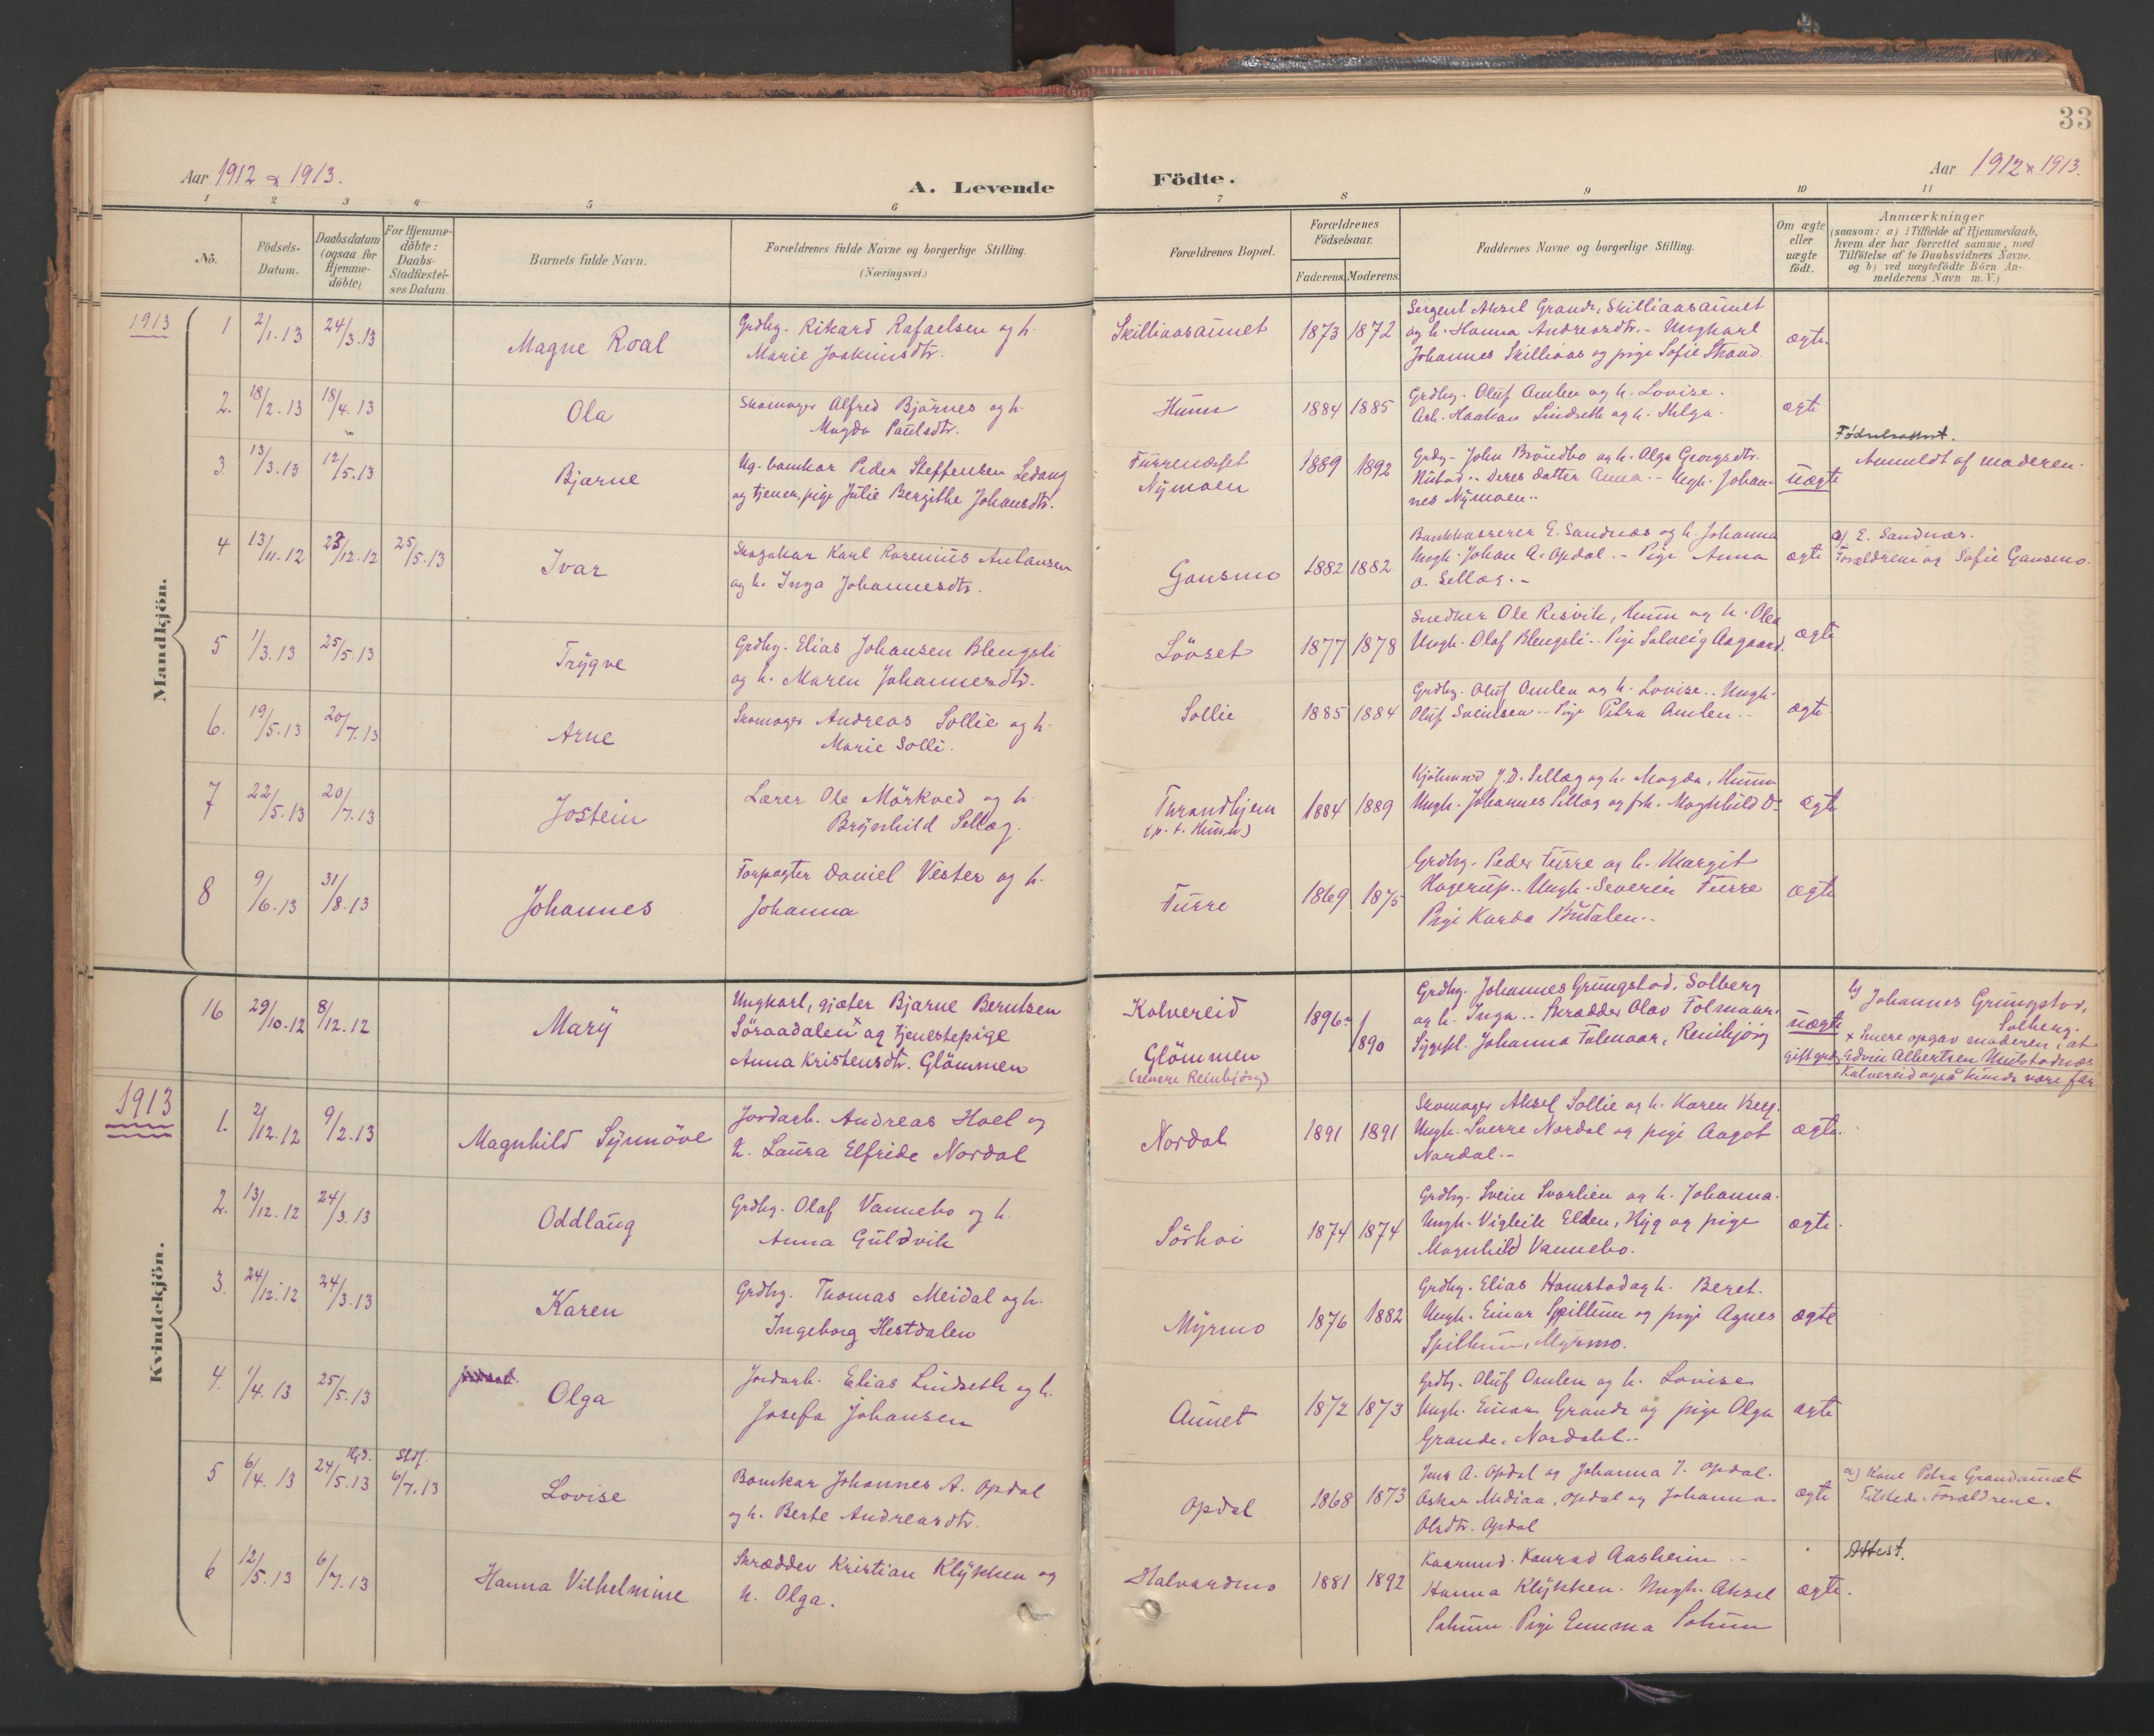 33
Aar 1912 & 1913.
A. Levende
Födte.
Aar 1912 & 1913.
1 2 3 4 5 6 7 8 9 10 11
No.
Födsels-
Datum.
Daabsdatum
(ogsaa for
Hjemme-
döbte)
For Hjemme-
döbte:
Daabs-
Stadfæstel-
ses Datum.
Barnets fulde Navn.
Forældrenes fulde Navne og borgerlige Stilling.
(Næringsvei.)
Forældrenes Bopæl.
Forældrenes
Födselsaar.
Faderens. Moderens.
Faddernes Navne og borgerlige Stilling.
Om ægte
eller
uægte
födt.
Anmærkninger
(saasom: a) i Tilfælde af Hjemmedaab,
hvem der har forrettet samme, med
Tilföielse af to Daabsvidners Navne.
og b) ved uægtefödte Börn An-
melderens Navn m.V.)
Mandkjön.
1913
1 2/1.13 24/3.13 Magne Roal
Grdbg. Rikard Rafaelsen og h.
Marie Joakimsdtr.
Skilliaasaunet 1873 1872
Sergent Aksel Grande, Skilliaasaunet
og h. Hanna Andreasdtr. - Ungkarl
Johannes Skilliaas og pige Sofie Strand.
ægte.
2. 18/2.13 18/4.13 Ola
Skomager Alfred Bjørnes og h.
Magda Paulsdtr.
Hunn 1884 1885
Grdbg. Oluf Amlen og h. Lovise.
Arb. Haakon Lindseth og h. Helga.
ægte
3. 13/3.13 12/5.13 Bjarne
Ug. bankar Peder Steffensen Ledang
og tjenes.pige Julie Bergithe Johansdtr.
Furrenesset
Nÿmoen
1889 1892
Grdbg. John Bröndbo og h. Olga Georgsdtr.
deres datter Anna. - Ungk. Johan-
nes Nÿmoen..
uægte
Födselsattest.
Anmeldt af moderen.
4 13/11.12 23/12.12 25/5.13 Ivar
Skogskar Karl Rorenius Antonsen
og h. Inga Johannesdtr.
Gansmo 1882 1882
Bankkasserer E. Sandnes og h. Johanna
Ungk. Johan A. Opdal. - Pige Anna
O. Sellæg. -
ægte
a) E. Sandnæs.
Forældrene og Sofie Gansmo.
5 1/3.13 25/5.13 Trÿgve
Grdbg. Elias Johansen Blengsli
og h. Maren Johannesdtr.
Lövset 1877 1878
Snedker Ole Resvik, Hunn og h. Olea
Ungk. Olaf Blengsli.. Pige Solveig Aagaard.
ægte
6. 19/5.13 20/7.13 Arne
Skomager Andreas Sollie og h.
Marie Solli.
Sollie 1885 1884
Grdbg. Oluf Amlen og h. Lovise.. Ungk.
Oluf Sveinsen - Pige Petra Amlen..
ægte
7 22/5.13 20/7.13 Jostein
Lærer Ole Mörkved og h.
Brÿnhild Sellæg.
Trondhjem
(p. t. Hunn)
1884 1889
Kjöbmand J.D. Sellæg og h. Magda, Hunn
Ungk. Johannes Sellæg og frk. Magnhild Do
ægte
8 9/6.13 31/8.13 Johannes
Forpagter Daniel Vester og h.
Johanna
Furre 1869 1875
Grdbg. Peder Furre og h. Margit
Hagerup.. Ungk. Severin Furre
Pige Karda Budalen..
ægte
Kvindekjön.
16 29/10.12 8/12.12 Marÿ
Ungkarl, gjæter Bjarne Berntsen
Söraadalen x og tjenestepige
Anna Kristensdtr. Glömmen
Kolvereid
Glömmen
(senere Reinbjörg)
1896 1890
Grdbg. Johannes Grungstad, Solberg
og h. Inga.. Skrædder Olav Folmaar.
Sygepl. Johanna Folmaar, Reinbjörg
uægte
gift
b) Johannes Grungstad,
Solberg.
x Senere opgav moderen, at
Edvin Albertsen
Kolvereid også kunde være far
1913
1. 2/12.12 9/2.13 Magnhild Sÿnnöve
Jordarb. Andreas Hoel og
h. Laura Elfride Nordal
Nordal 1891 1891
Skomager Aksel Sollie og h. Karen Berg.
Ungk. Sverre Nordal og pige Aagot
Nordal. -
ægte.
2. 13/12.12 24/3.13 Oddlaug
Grdbg. Olaf Vannebo og h.
Anna Guldvik
Sörhoi 1874 1874
Grdbg. Svein Svarlien og h. Johanna.
Ungk. Vigleik Elden, Høg og pige
Magnhild Vannebo.
ægte.
3. 24/12.12 24/3.13 Karen
Grdbg. Thomas Meidal og h.
Ingeborg Hestdalen
Mÿrmo 1876 1882
Grdbg. Elias Homstad og h. Beret.
Ungk. Einar Spillum og pige Agnes
Spillum, Mÿrmo.
ægte
4. 1/4.13 25/5.13 Olga
Jordarb. Elias Lindseth og h.
Josefa Johansen
Aunet 1872 1873
Grdb. Oluf Amlen og h. Lovise
Ungk. Einar Grande og pige Olga
Grande, Nordahl..
ægte
5 6/4.13 Hjd. 24/5.13 Stdf. 6/7.13 Lovise
Bomkar Johannes A. Opdal
og h. Berte Andreasdtr.
Opdal 1868 1873
Jens A. Opdal og Johanna J. Opdal.
Oskar Mediaa, Opdal og Johanna
Olsdtr. Opdal
ægte
a) Kone Petra Grandaunet
Tilstede: Forældrene.
6 12/5.13 6/7.13 Hanna Vilhelmine
Skrædder Kristian Klÿkken og
h. Olga.
Halvardmo 1881 1892
Kaarmd. Konrad Aasheim ..
Hanna Klÿkken. Ungk. Aksel
Sahum Pige Emma Sahum
ægte.
Attest.